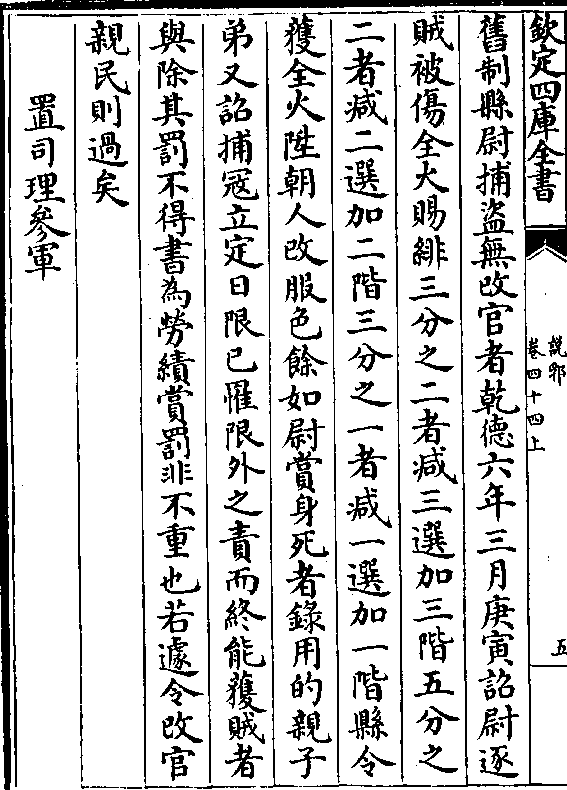 欽定四庫全書
說郛
卷四十四上
五
舊制縣尉捕盜無改官者乾德六年三月庚寅詔尉逐
賊被傷全火賜緋三分之二者减三選加三階五分之
二者减二選加二階三分之一者减一選加一階縣令
獲全火陞朝人改服色餘如尉賞身死者錄用的親子
弟又詔捕宼立定日限已罹限外之責而終能獲賊者
與除其罰不得書為勞績賞罰非不重也若遽令改官
親民則過矣
置司理參軍